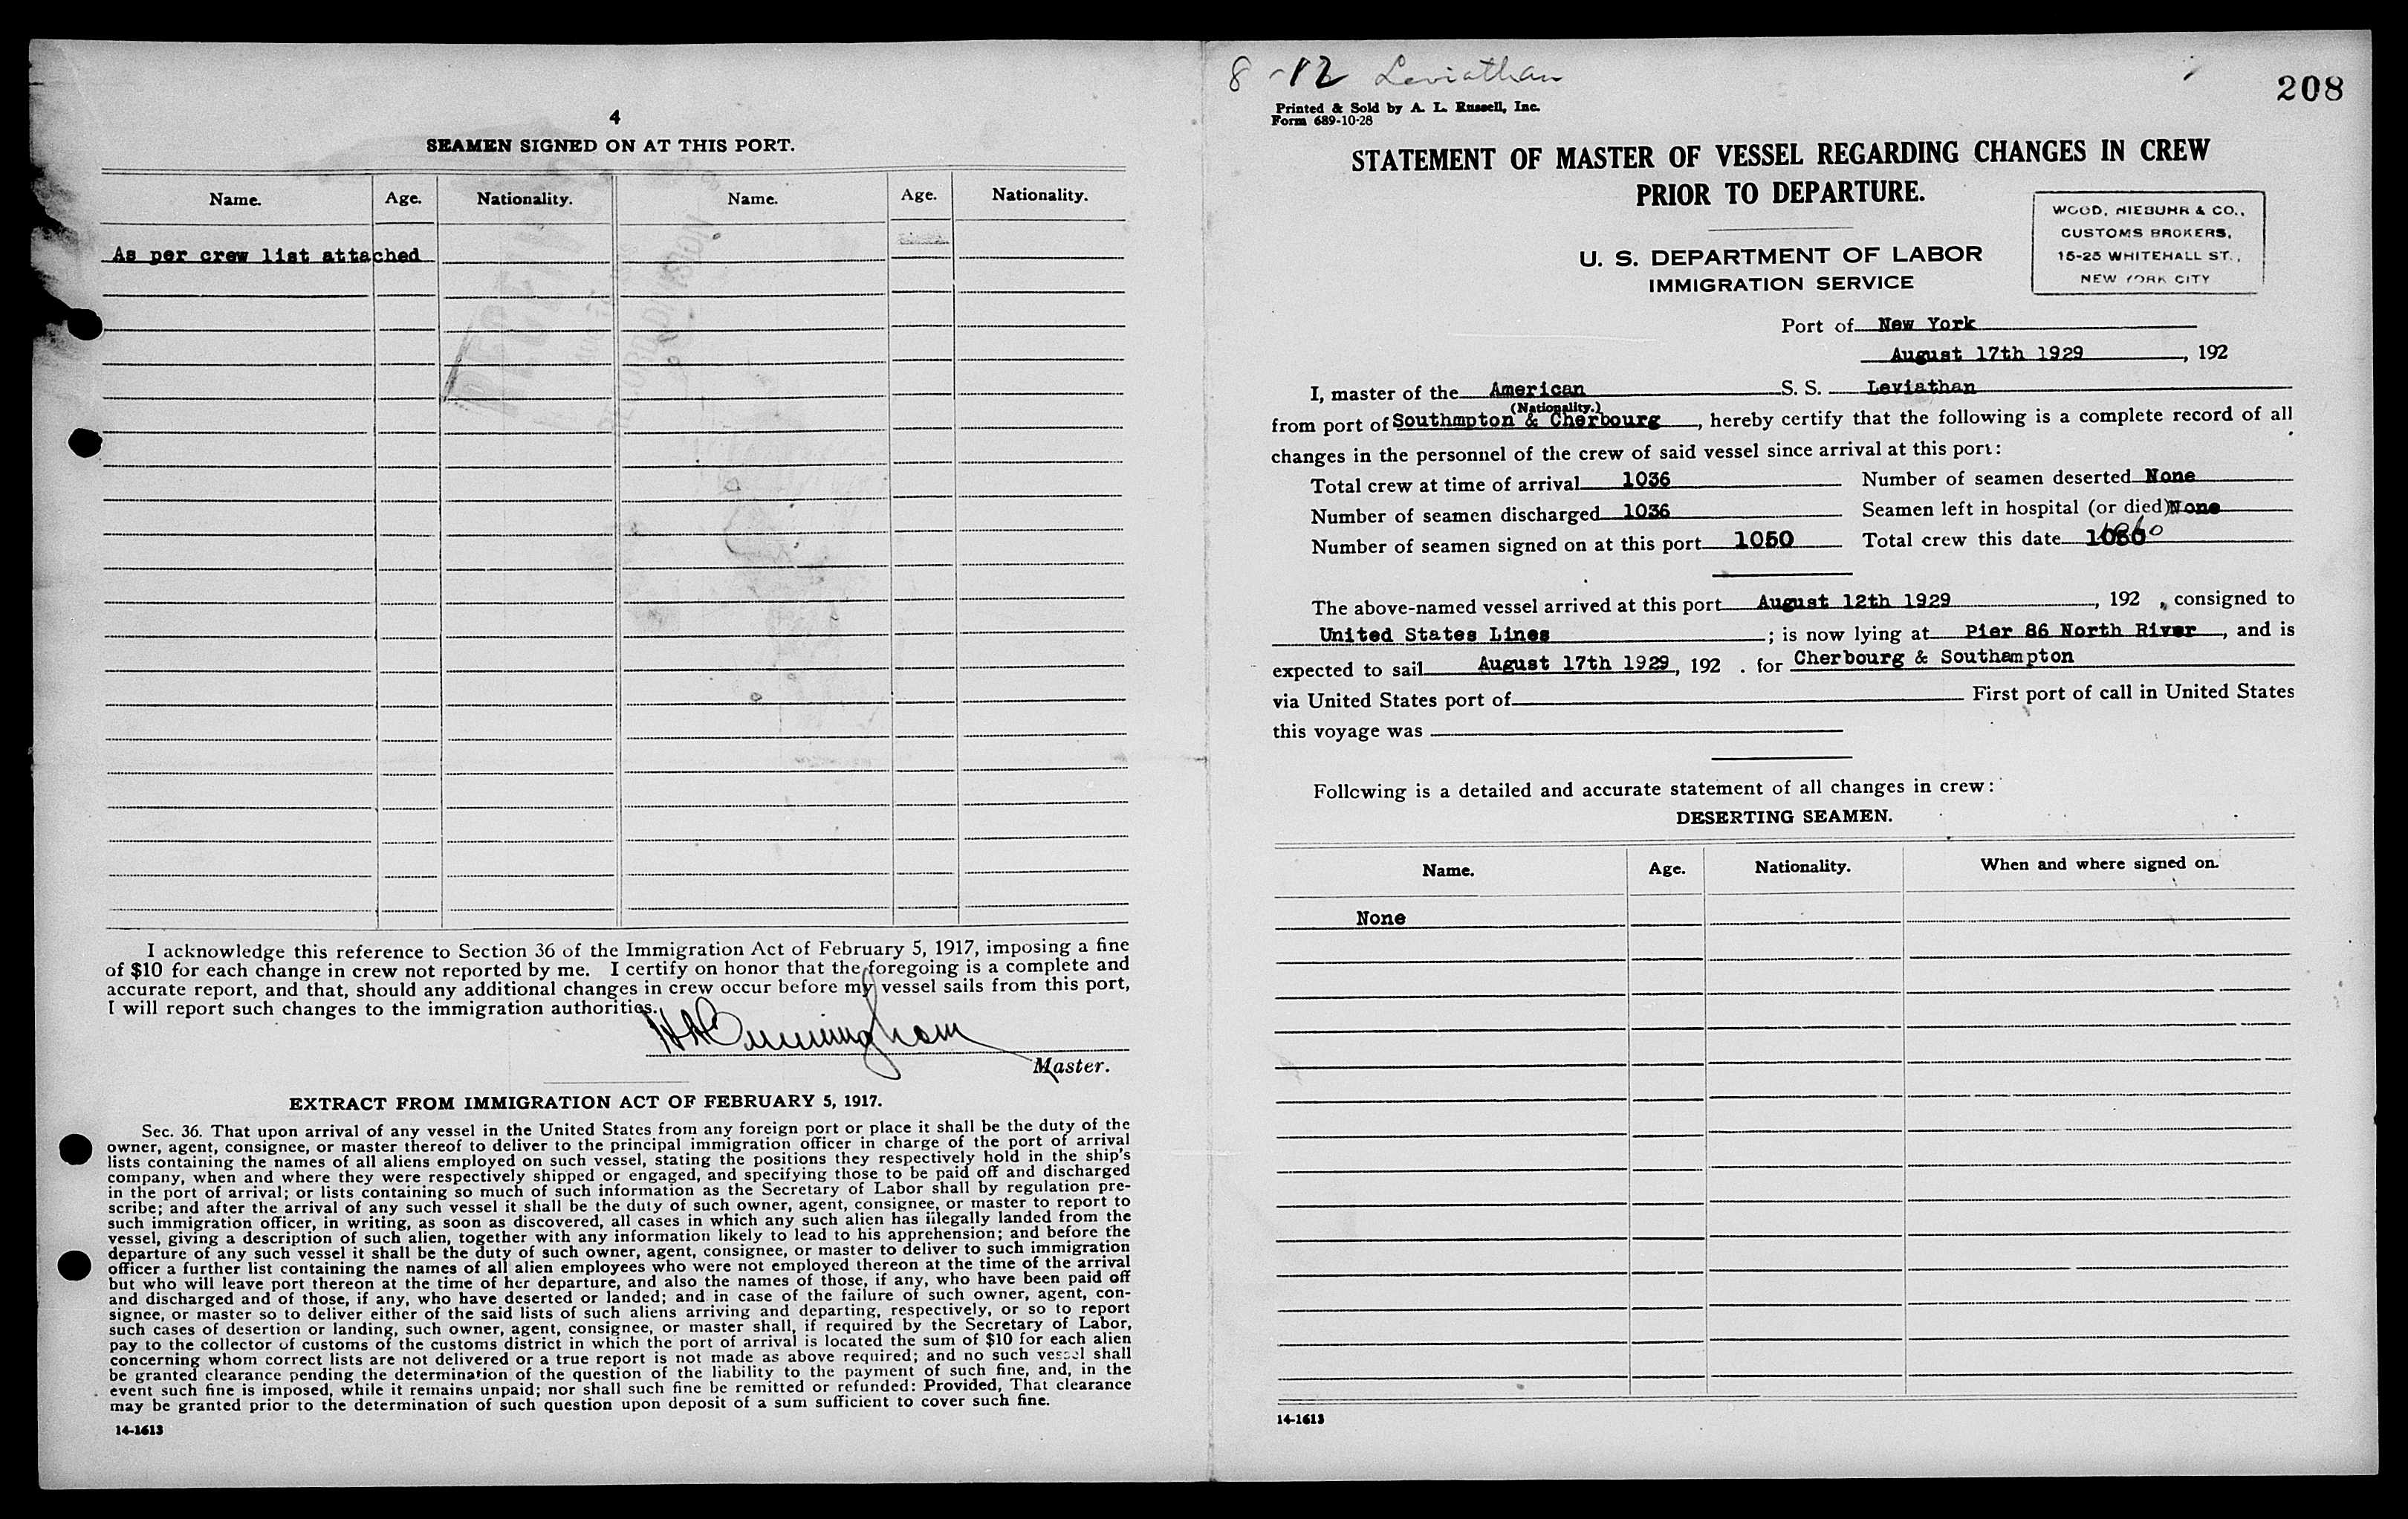 4
SEAMEN SIGNED ON AT THIS PORT.
Name. Age. Nationality. Name. Age. Nationality.
As per crew list attached
I acknowledge this reference to Section 36 of the Immigration Act of February 5, 1917, imposing a fine
of $10 for each change in crew not reported by me. I certify on honor that the foregoing is a complete and
accurate report, and that, should any additional changes in crew occur before my vessel sails from this port,
I will report such changes to the immigration authorities.
HACunningham
Master.
EXTRACT FROM IMMIGRATION ACT OF FEBRUARY 5, 1917.
Sec. 36. That upon arrival of any vessel in the United States from any foreign port or place it shall be the duty of the
owner, agent, consignee, or master thereof to deliver to the principal immigration officer in charge of the port of arrival
lists containing the names of all aliens employed on such vessel, stating the positions they respectively hold in the ship's
company, when and where they were respectively shipped or engaged, and specifying those to be paid off and discharged
in the port of arrival; or lists containing so much of such information as the Secretary of Labor shall by regulation pre-
scribe; and after the arrival of any such vessel it shall be the duty of such owner, agent, consignee, or master to report to
such immigration officer, in writing, as soon as discovered, all cases in which any such alien has illegally landed from the
vessel, giving a description of such alien, together with any information likely to lead to his apprehension; and before the
departure of any such vessel it shall be the duty of such owner, agent, consignee, or master to deliver to such immigration
officer a further list containing the names of all alien employees who were not employed thereon at the time of the arrival
but who will leave port thereon at the time of her departure, and also the names of those, if any, who have been paid off
and discharged and of those, if any, who have deserted or landed; and in case of the failure of such owner, agent, con-
signee, or master so to deliver either of the said lists of such aliens arriving and departing, respectively, or so to report
such cases of desertion or landing, such owner, agent, consignee, or master shall, if required by the Secretary of Labor,
pay to the collector of customs of the customs district in which the port of arrival is located the sum of $10 for each alien
concerning whom correct lists are not delivered or a true report is not made as above required; and no such vessel shall
be granted clearance pending the determination of the question of the liability to the payment of such fine, and, in the
event such fine is imposed, while it remains unpaid; nor shall such fine be remitted or refunded: Provided, That clearance
may be granted prior to the determination of such question upon deposit of a sum sufficient to cover such fine.
14-1613
8-12 Leviathan
208
Printed & Sold by A. L. Russell, Inc.
Form 689-10-28
STATEMENT OF MASTER OF VESSEL REGARDING CHANGES IN CREW
PRIOR TO DEPARTURE.
WOOD, NIEBUHR & CO.,
CUSTOMS BROKERS,
15-25 WHITEHALL ST.,
NEW YORK CITY
U. S. DEPARTMENT OF LABOR
IMMIGRATION SERVICE
Port of New York
August 17th 1929, 192
I, master of the American S. S. Leviathan
(Nationality.)
from port of Southmpton & Cherbourg, hereby certify that the following is a complete record of all
changes in the personnel of the crew of said vessel since arrival at this port:
Total crew at time of arrival 1036 Number of seamen deserted None
Number of seamen discharged 1036 Seamen left in hospital (or died) None
Number of seamen signed on at this port 1050 Total crew this date
The above-named vessel arrived at this port August 12th 1929, 192 , consigned to
United States Lines; is now lying at Pier 86 North River, and is
expected to sail August 17th 1929, 192 . for Cherbourg & Southampton
via United States port of First port of call in United States
this voyage was
Following is a detailed and accurate statement of all changes in crew:
DESERTING SEAMEN.
Name. Age. Nationality. When and where signed on.
None
14-1613